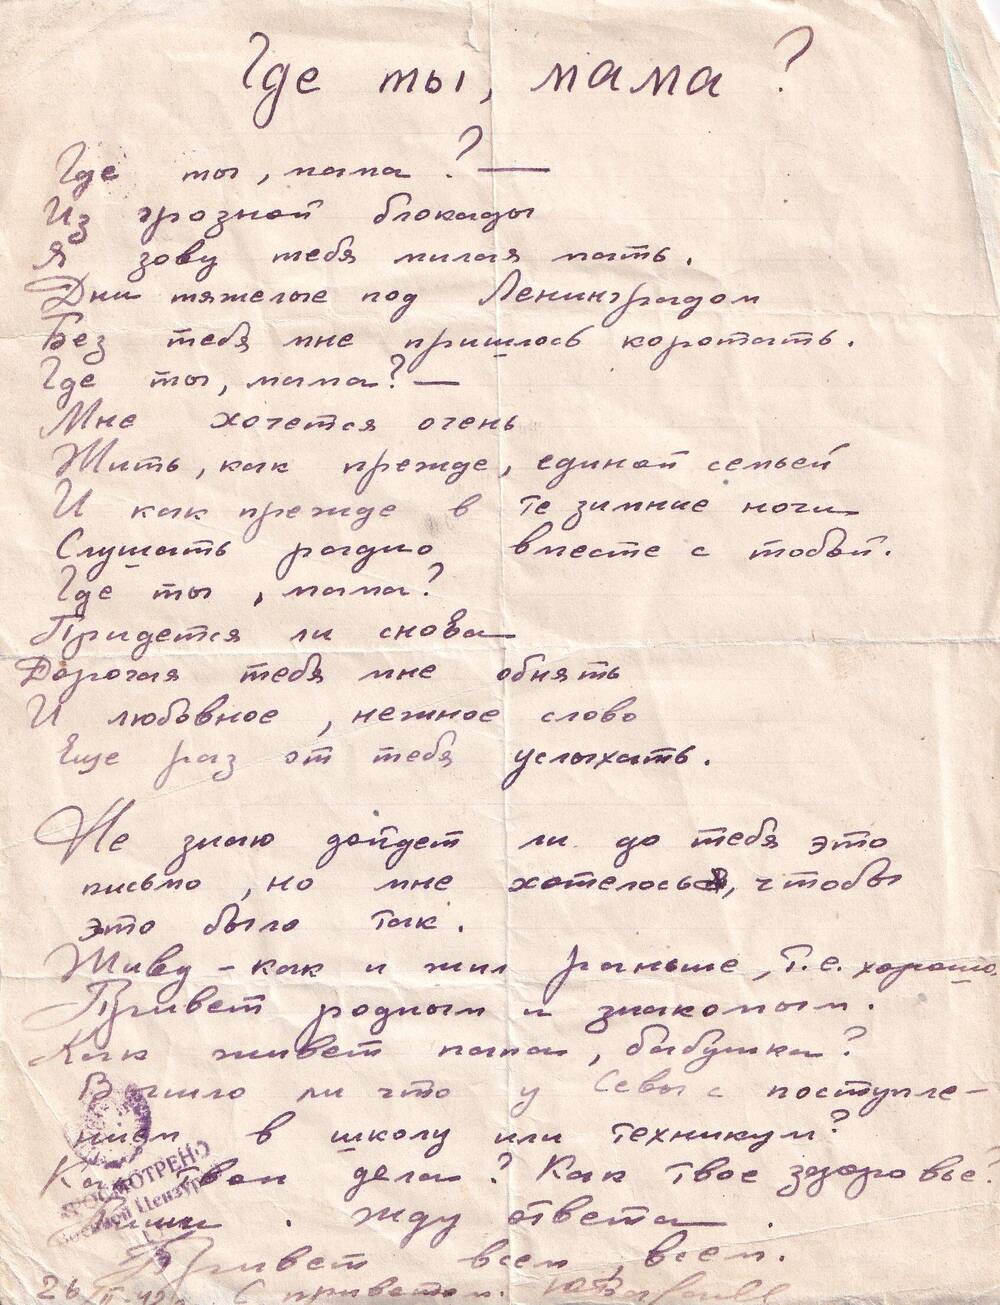 Где ты, мама?
Где ты, мама? —
Из грозной блокады
Я зову тебя милая мать.
Дни тяжелые под Ленинградом
Без тебя мне пришлось коротать.
Где ты, мама? —
Мне хочется очень
Жить, как прежде, единой семьей
И как прежде в те зимние ночи
Слушать радио вместе с тобой.
Где ты, мама?
Придется ли снова
Дорогая тебя мне обнять
И любовное, нежное слово
Еще раз от тебя услыхать.
Не знаю дойдет ли до тебя это
письмо, но мне хотелось, чтобы
это было так.
Живу - как и жил раньше, т.е. хорошо.
Привет родным и знакомым.
Как живет папа, бабушка?
Вышло ли что у Севы с поступле-
нием в школу или техникум?
Как твои дела? Как твое здоровье?
Пиши. Жду ответа.
Привет всем, всем.
26 С приветом.
ПРОСМОТРЕНО
Военной Цензурой